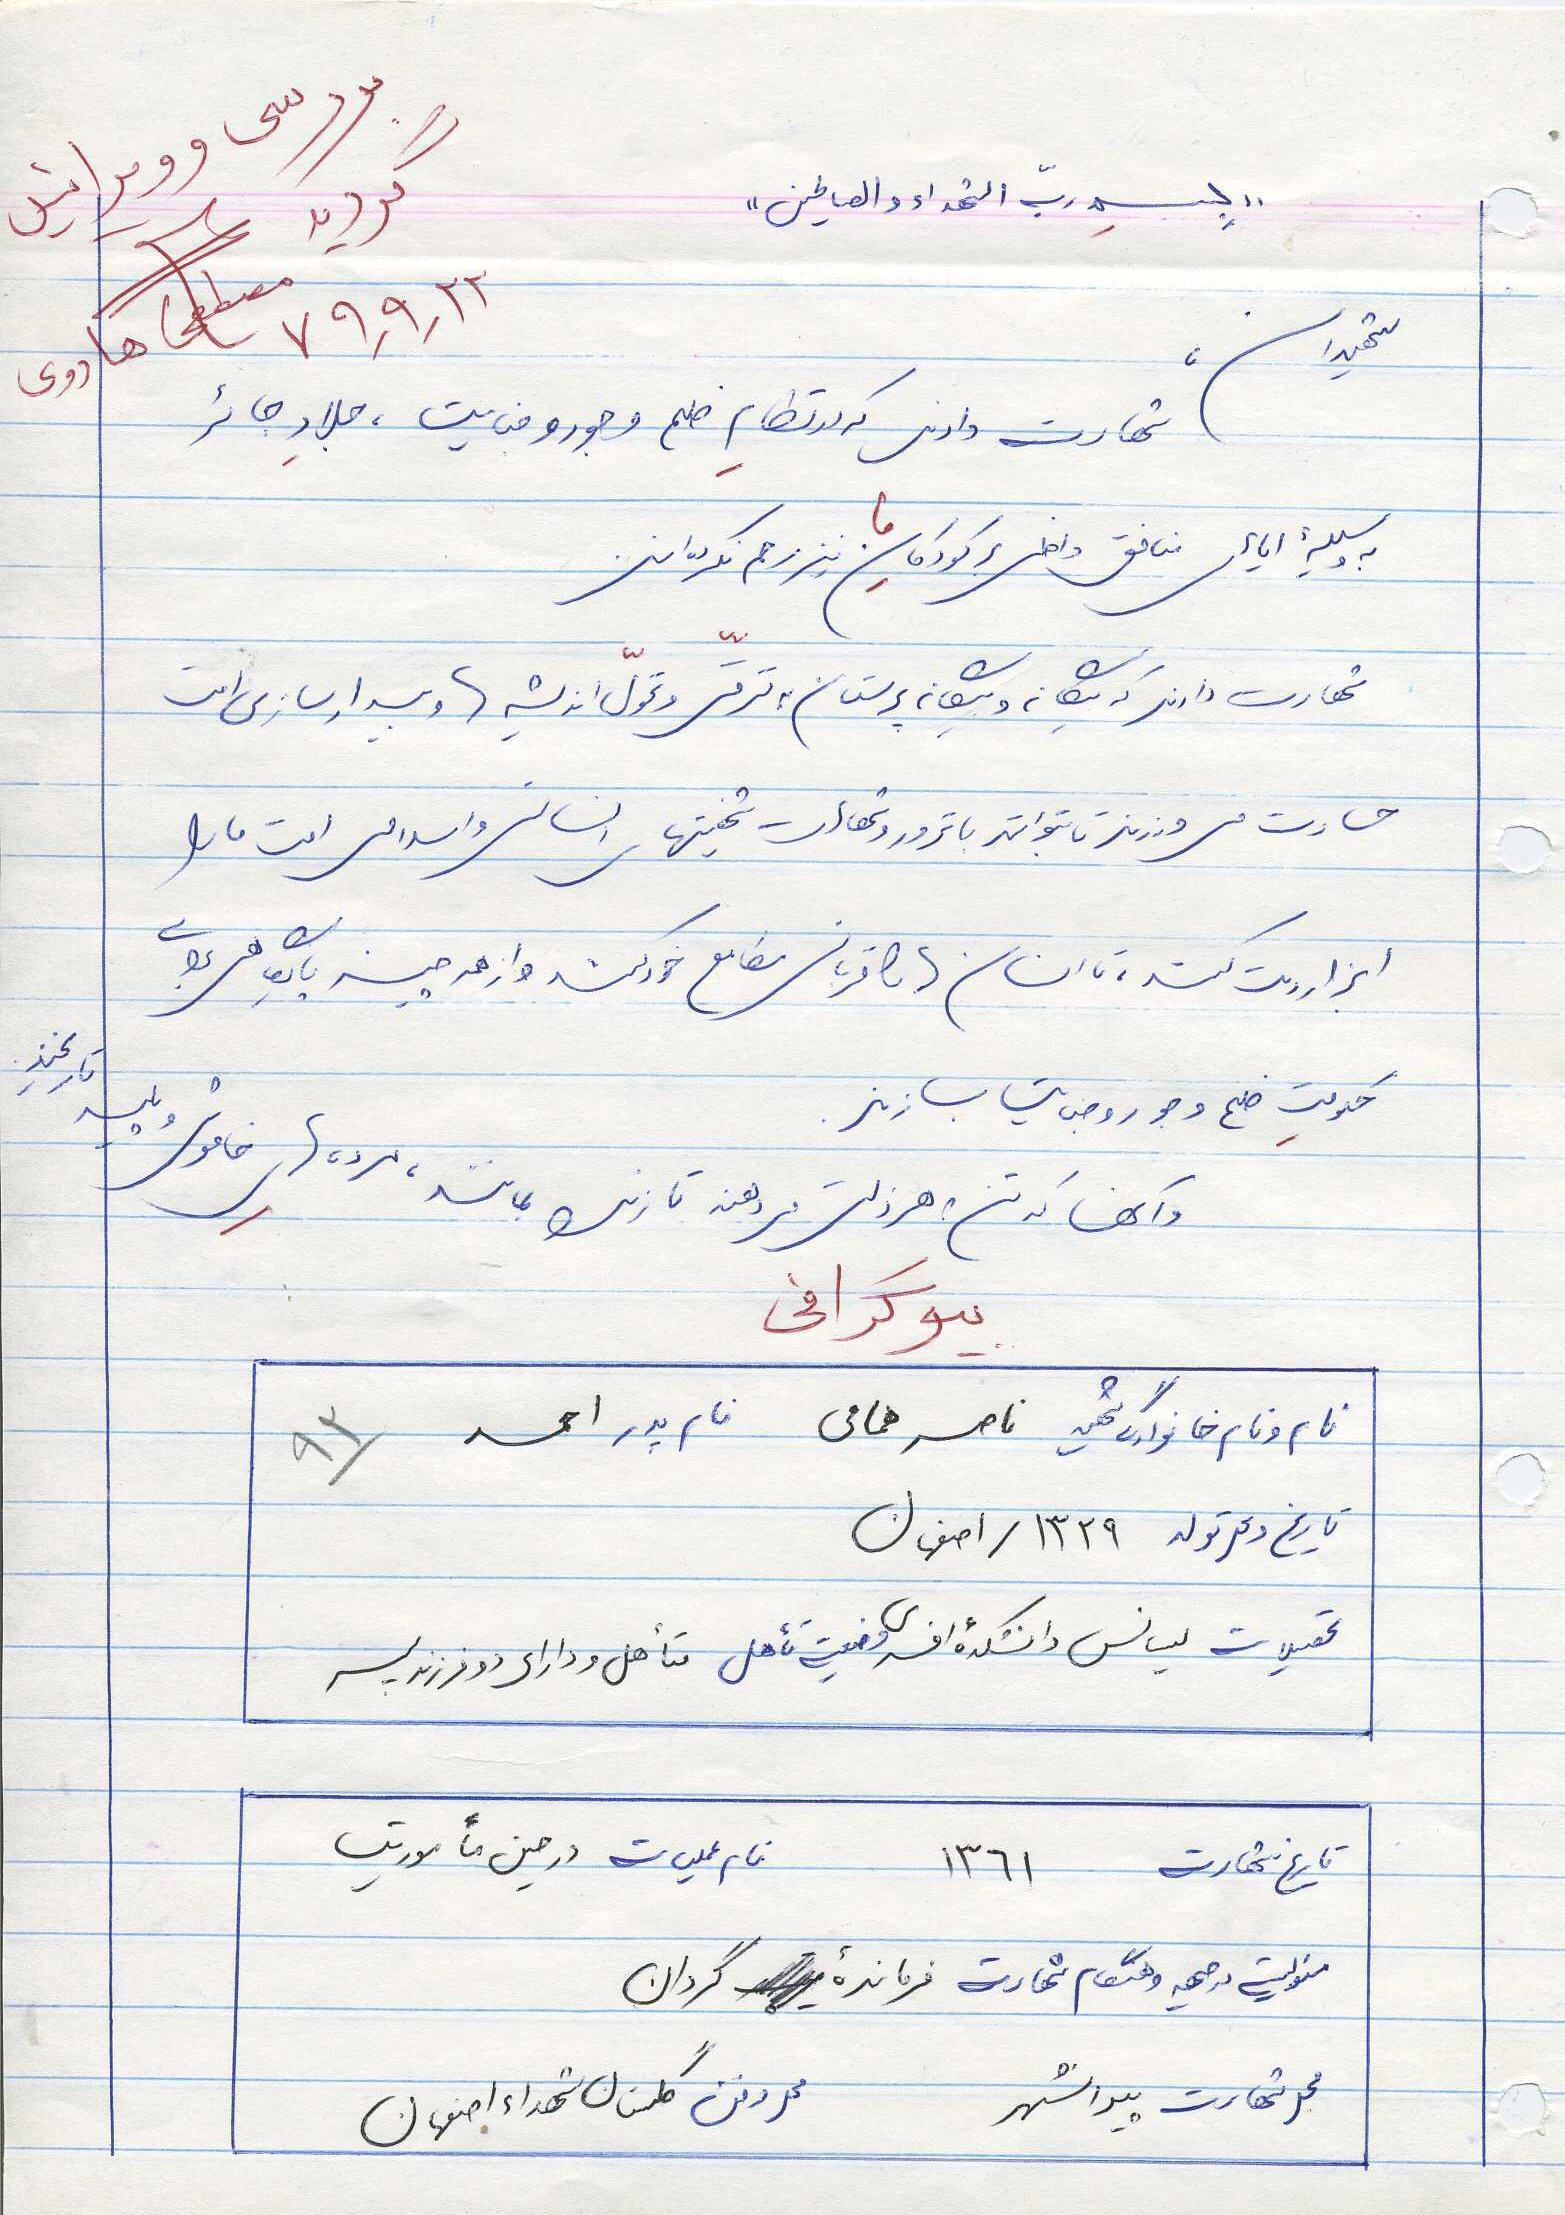 بررسی و ویرایش
گردید
۷۹٫۹٫۲۲
مصطفی هادوی
«بِسمِ ربّ الشهداء والصالحین»
شهیدان،
شهادت دادند که در نظامِ ظلم و جور و جنایت، جلادِ جائر
به وسیلهٔ ایادی منافق داخلی بر کودکانِ ما نیز رحم نکرده‌اند.
شهادت دادند که بیگانه و بیگانه پرستان به ترقّی و تحوّل اندیشه ها و بیدارسازی امت
حسادت می ورزند تا بتوانند با ترور و شهادت شخصیتهای انسانی و اسلامی امت ما را
ابزار دست کنند، تا انسان ها را قربانی مطامع خود کنند و از همه چیز پایگاهی برای
حکومتِ ظلم و جور و جنایت بسازند.
و آنها که تن به هر ذلتی می دهند تا زنده بمانند، مرده های خاموش و پلید تاریخند.
بیوگرافی
نام و نام خانوادگی شهید ناصر همامی نام پدر احمد
۹۲
تاریخ و محل تولد ۱۳۲۹ / اصفهان
تحصیلات لیسانس دانشکدهٔ افسری وضعیت تأهل متأهل و دارای دو فرزند پسر
تاریخ شهادت ۱۳۶۱ نام عملیات در حین مأموریت
مسئولیت در جبهه و هنگام شهادت فرماندهٔ گردان
محل شهادت پیرانشهر محل دفن گلستان شهداء اصفهان